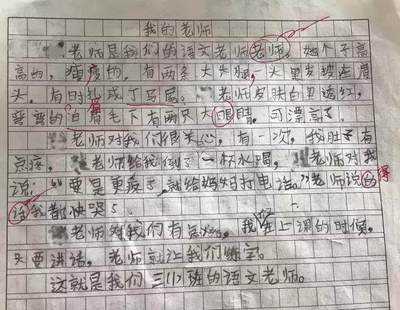 我的老师
老师是我们的语文老师老师。她个子高
高的，瘦瘦的，有两条大头辫，头里发披在肩
头，有时扎成丁马尾。老师皮肤白里透红，
弯弯的眉毛下有两只大眼睛，可漂亮了。
老师对我们很关心，有一次，我肚子有
点疼，老师给我倒了一杯水喝，老师对我
说：“要是更疼了，就给妈妈打电话。”老师说的
得
话我都被哭了。
老师对我们有，我在上课的时候，
头要讲话，老师就让我们练字。
这就是我们三(1)班的语文老师。